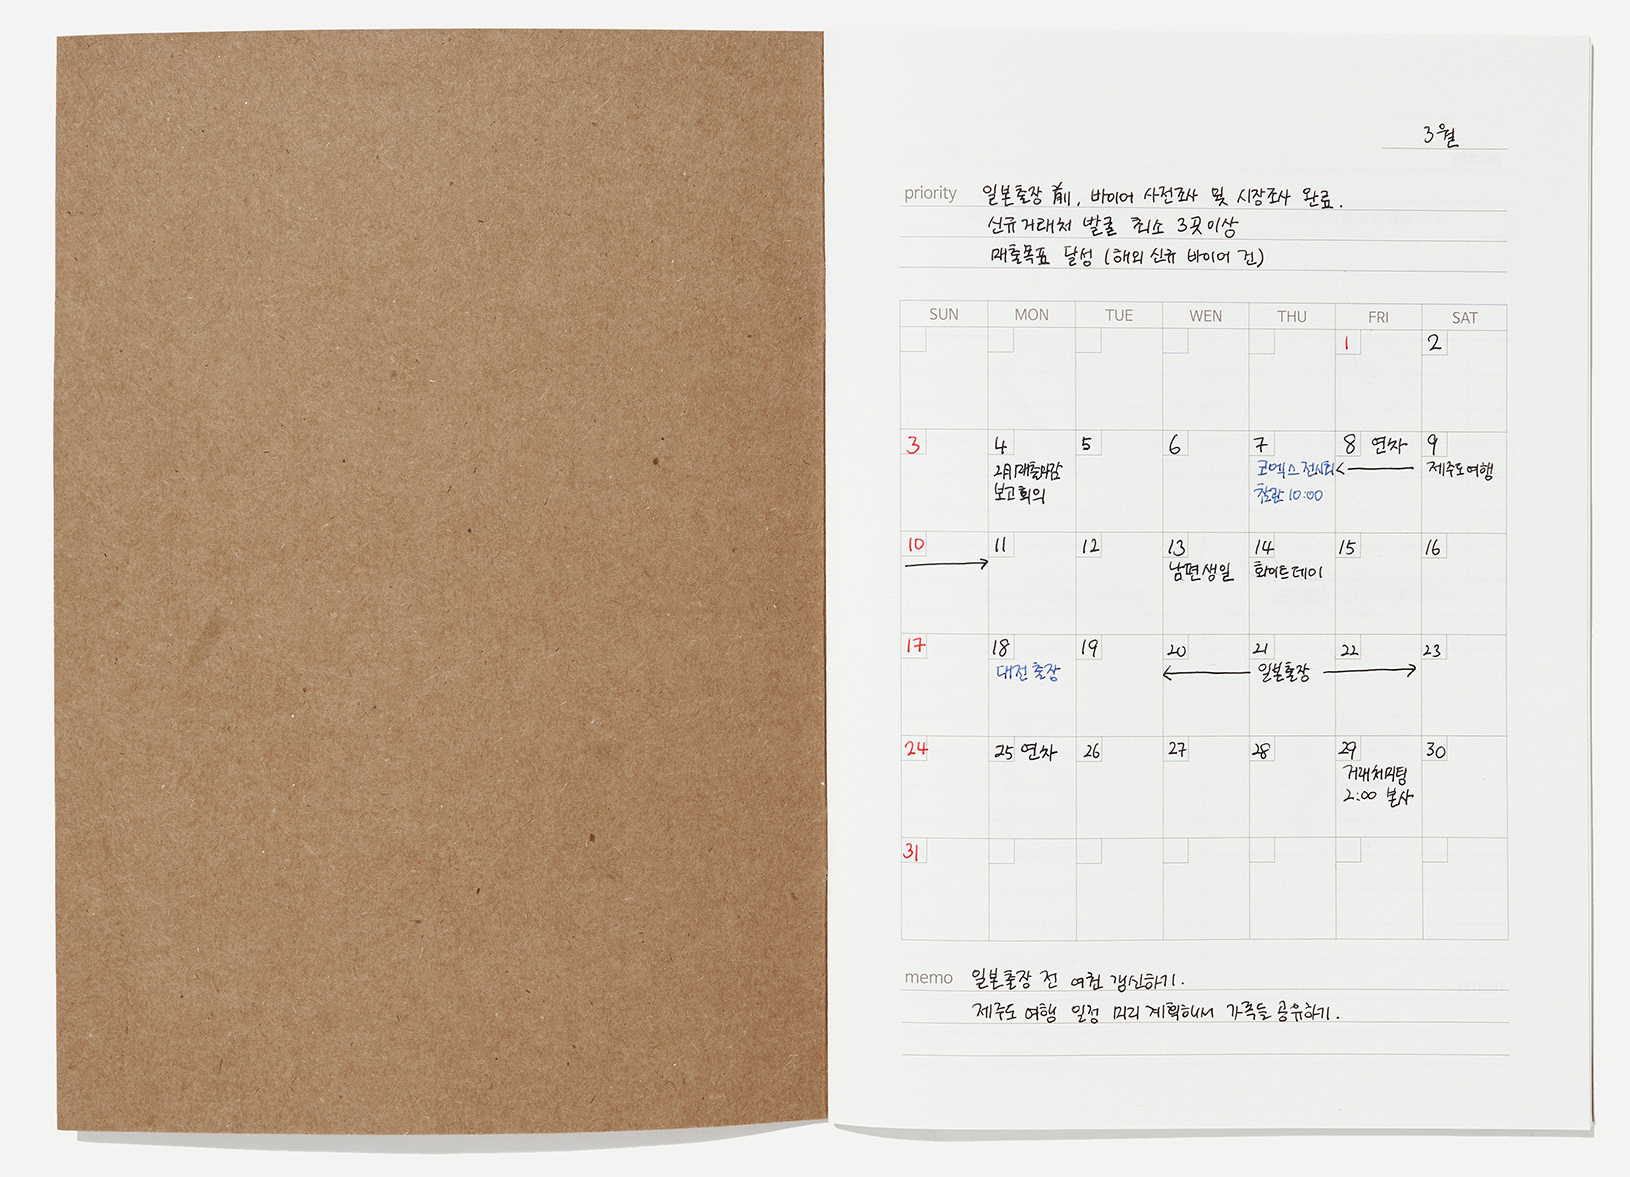 3월
priority 일본출장 前, 바이어 사전조사 및 시장조사 완료.
신규거래처 발굴 최소 3곳이상
매출목표 달성 (해외 신규 바이어 건)
SUN MON TUE WEN THU FRI SAT
1 2
3 4 5 6 7 8 연차 9
2月매출마감 코엑스 전시회 제주도여행
보고회의 참관 10:00
10 11 12 13 14 15 16
남편생일 화이트데이
17 18 19 20 21 22 23
대전출장 일본출장
24 25 연차 26 27 28 29 30
거래처미팅
2:00 본사
31
memo 일본출장 전 여권 갱신하기.
제주도 여행 일정 미리 계획해서 가족들 공유하기.